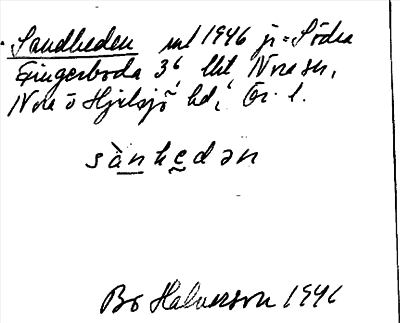 Sandheden utl 1946 jr = Södra
Gingerboda 3⁶, lht Nora sn,
Nora o Hjulsjö hd, Ör. l.
sànhedən
Bo Halverson 1946